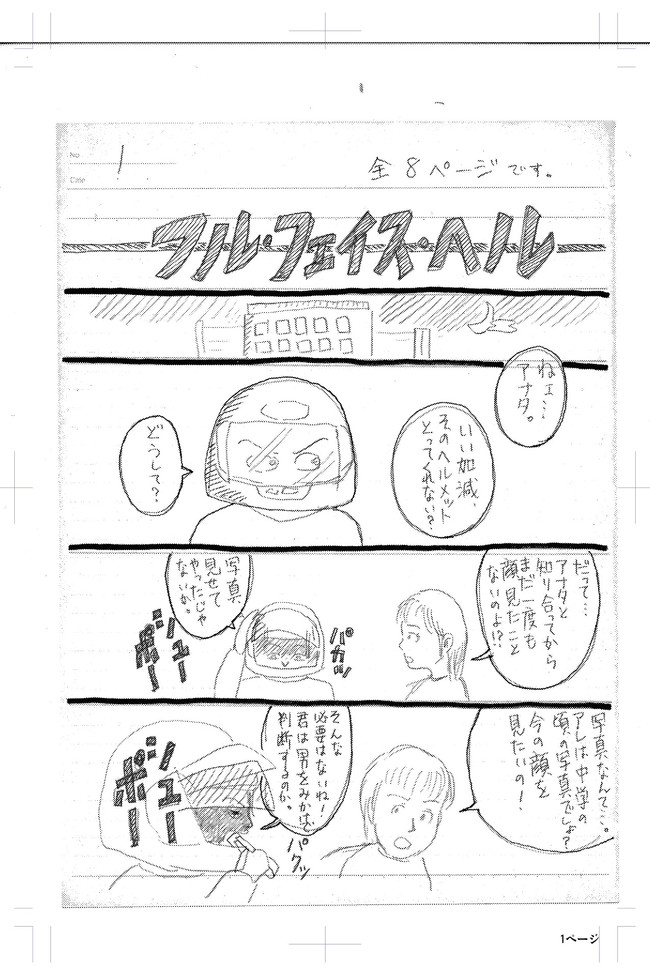 No
1
Date
全8ページです。
フル・フェイス・ヘル
ねェ…
アナタ。
いい加減、
そのヘルメット
とってくれない？
どうして？
だって…
アナタと
知り合ってから
まだ一度も
顔見たこと
ないのよ!?
パカッ
写真
見せて
やったじゃ
ないか。
ボシュー
写真なんて…。
アレは中学の
頃の写真でしょ？
今の顔を
見たいの！
そんな
必要はないね！
君は男をみかけで
判断するのか。
パクッ
ボシュー
1ページ